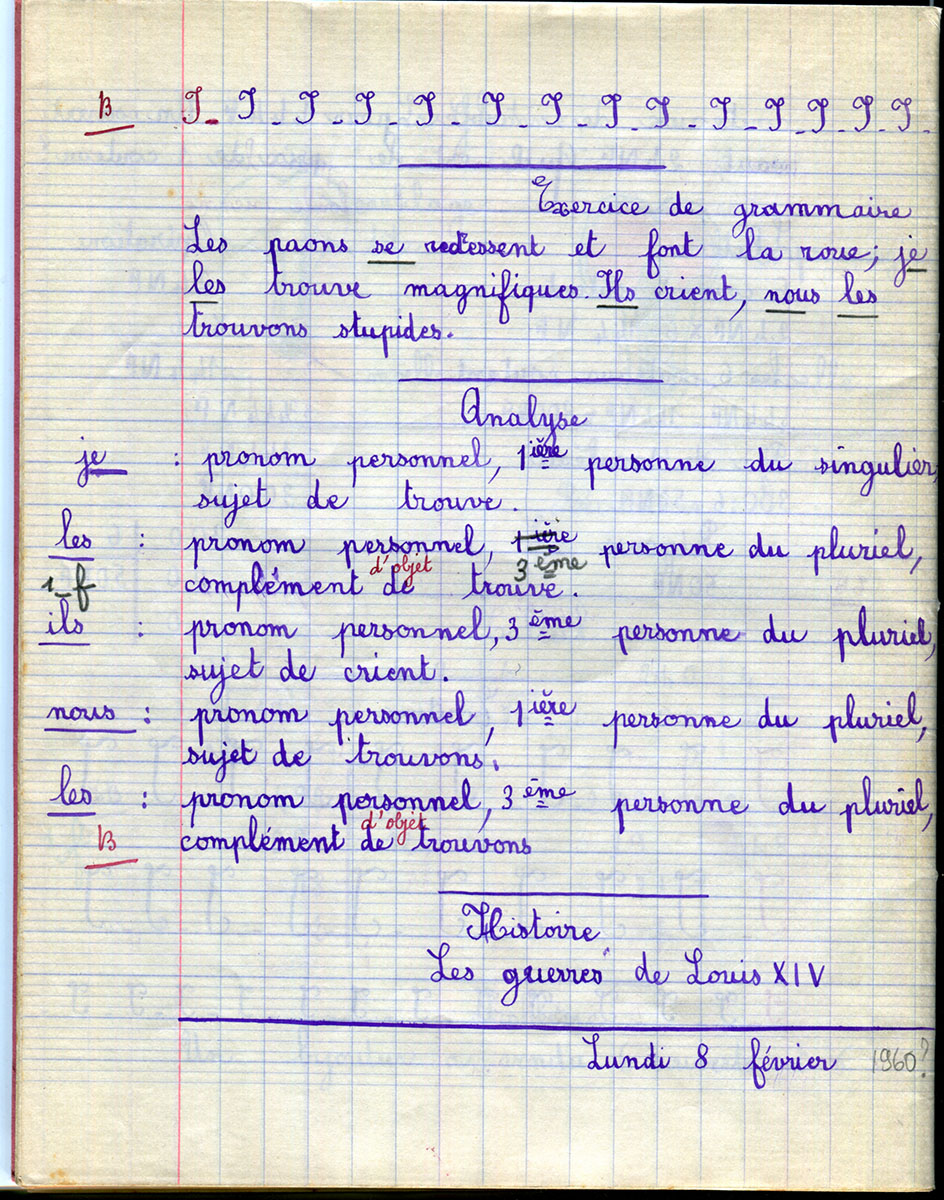 B J - J - J - J - J - J - J - J - J - J - J - J - J
Exercice de grammaire
Les paons se redressent et font la roue; je
les trouve magnifiques. Ils crient, nous les
trouvons stupides.
Analyse
je : pronom personnel, 1ière personne du singulier,
sujet de trouve.
les : pronom personnel, 1ière 3ème personne du pluriel,
1 f complément d'objet de trouve.
ils : pronom personnel, 3ème personne du pluriel,
sujet de crient.
nous : pronom personnel, 1ière personne du pluriel,
sujet de trouvons.
les : pronom personnel, 3ème personne du pluriel,
B complément d'objet de trouvons
Histoire
Les guerres de Louis XIV
Lundi 8 février 1960?